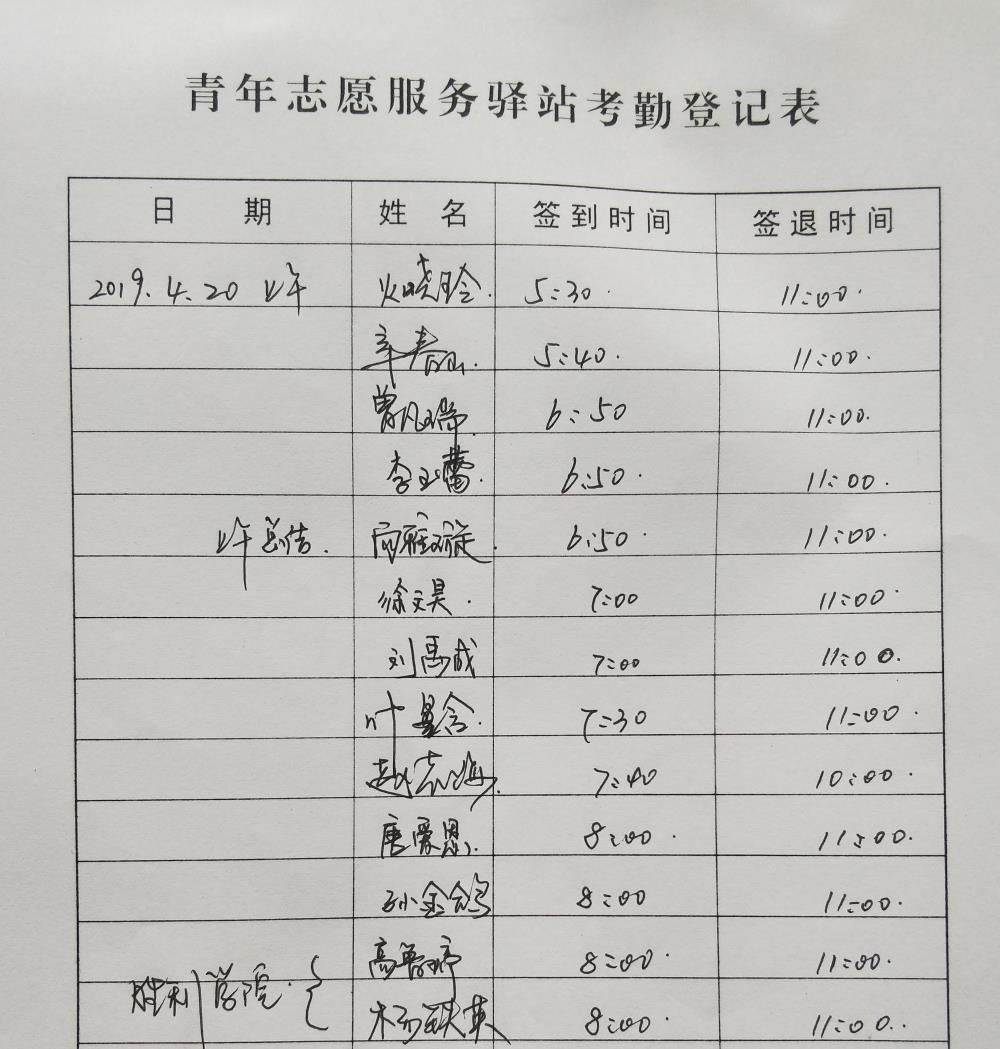 青年志愿服务驿站考勤登记表
日 期 姓 名 签到时间 签退时间
2019.4.20 上午 火晓玲. 5:30. 11:00.
辛春山. 5:40. 11:00.
曾凡瑞 6:50 11:00.
李玉蕾. 6:50. 11:00.
上午总结. 6:50. 11:00.
徐文昊. 7:00 11:00.
刘禹成 7:00 11:00.
叶 7:30 11:00.
赵志海. 7:40 10:00.
唐爱恩. 8:00. 11:00.
孙金鸽 8:00 11:00.
高鲁婷 8:00. 11:00.
胜利学院. { 杨 英 8:00. 11:00..